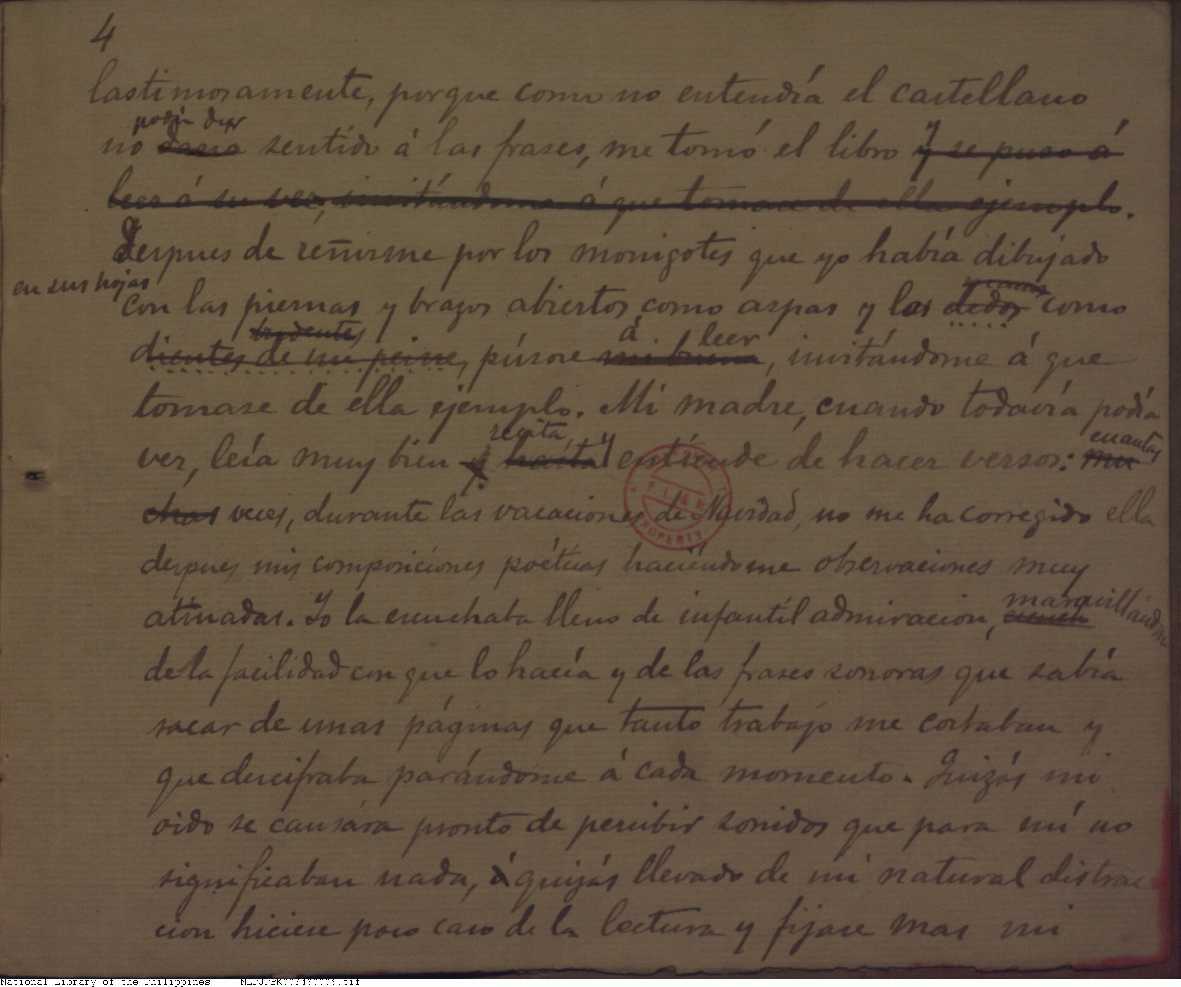 4
lastimosamente, porque como no entendía el castellano
podía dar
no daba sentido á las frases, me tomó el libro y se puso á
leer á su vez, invitándome á que tomase de ella ejemplo.
Despues de reñirme por los monigotes que yo había dibujado
en sus hojas
con las piernas y brazos abiertos como aspas y los dedos como
manos
tridentes
dientes de un peine, púsose á leer, invitándome á que
tomase de ella ejemplo. Mi madre, cuando todavía podía
recita,
ver, leía muy bien y hasta y entiende de hacer versos: mu
cuantas
chas veces, durante las vacaciones de Navidad, no me ha corregido ella
despues mis composiciones poéticas haciéndome observaciones muy
atinadas. Yo la escuchaba lleno de infantil admiracion,
maravillándome
de la facilidad con que lo hacía y de las frases sonoras que sabía
sacar de unas páginas que tanto trabajo me costaban y
que descifraba parándome á cada momento. Quizás mi
oido se cansára pronto de percibir sonidos que para mí no
significaban nada, á quizás llevado de mi natural distrac
cion hiciese poco caso de la lectura y fijase mas mi
PROPERTY
National Library of the Philippines